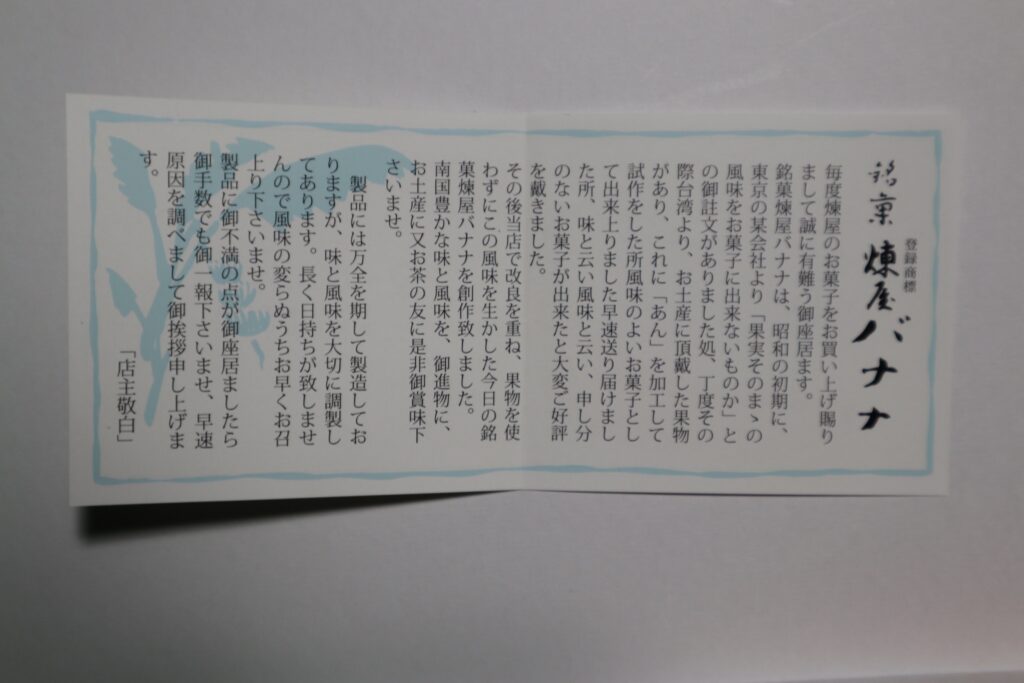 登録商標
銘菓 煉屋バナナ
毎度煉屋のお菓子をお買い上げ賜り
まして誠に有難う御座居ます。
銘菓煉屋バナナは、昭和の初期に、
東京の某会社より「果実そのまゝの
風味をお菓子に出来ないものか」と
の御註文がありました処、丁度その
際台湾より、お土産に頂戴した果物
があり、これに「あん」を加工して
試作をした所風味のよいお菓子とし
て出来上りました早速送り届けまし
た所、味と云い風味と云い、申し分
のないお菓子が出来たと大変ご好評
を戴きました。
その後当店で改良を重ね、果物を使
わずにこの風味を生かした今日の銘
菓煉屋バナナを創作致しました。
南国豊かな味と風味を、御進物に、
お土産に又お茶の友に是非御賞味下
さいませ。
製品には万全を期して製造してお
りますが、味と風味を大切に調製し
てあります。長く日持ちが致しませ
んので風味の変らぬうちお早くお召
上り下さいませ。
製品に御不満の点が御座居ましたら
御手数でも御一報下さいませ、早速
原因を調べまして御挨拶申し上げま
す。
「店主敬白」